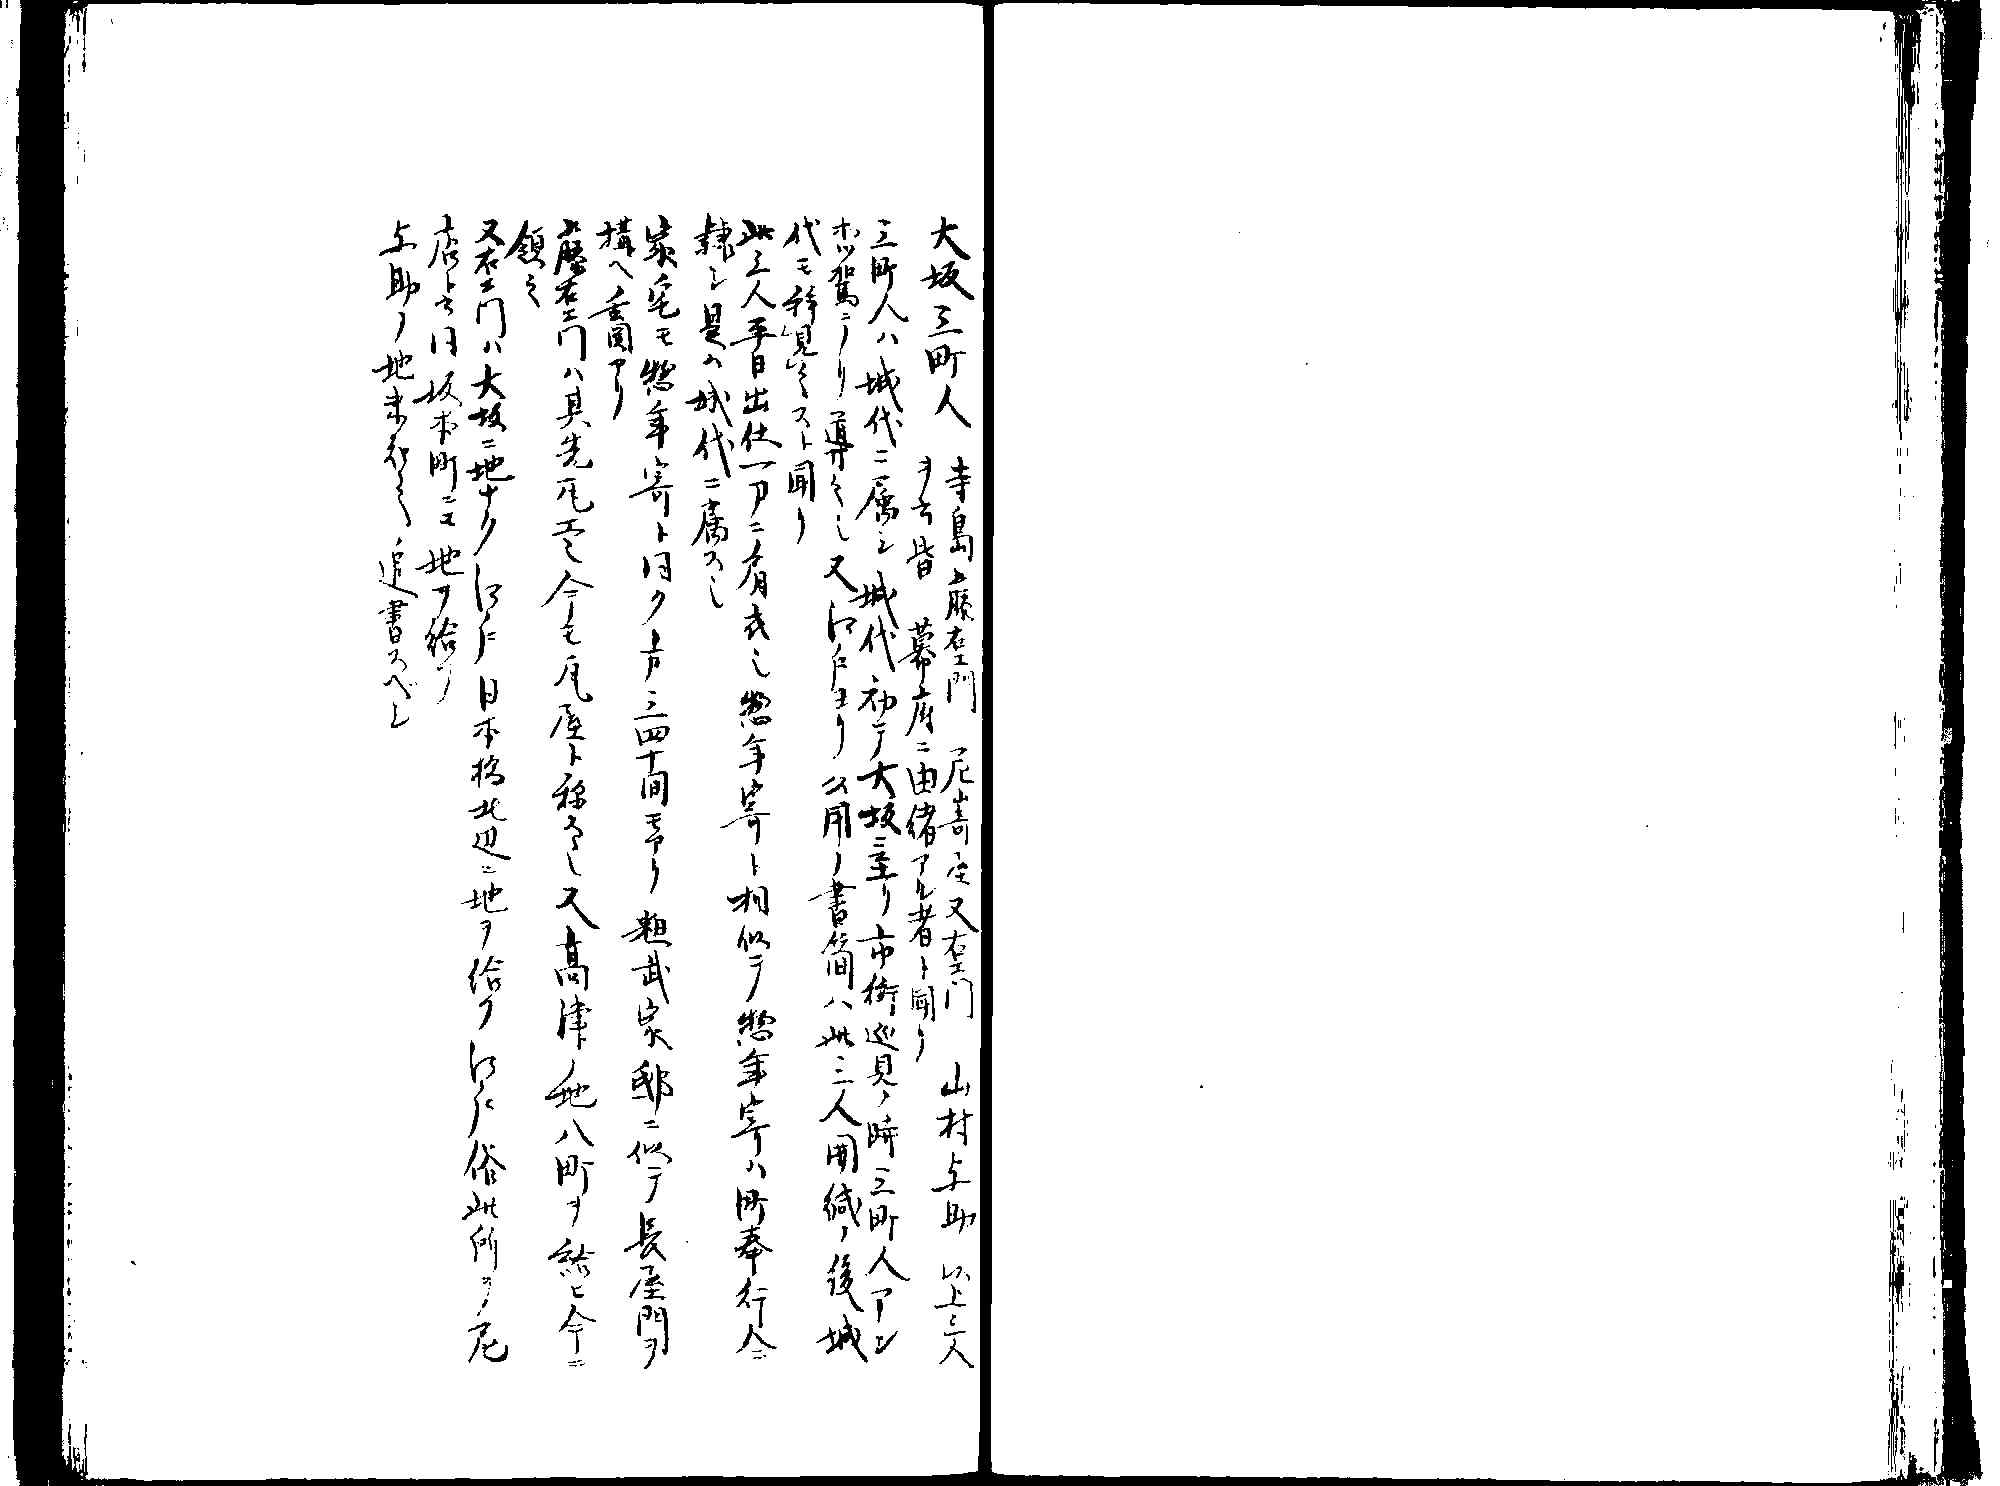 大坂三町人　寺島藤右エ門　尼崎屋又右エ門　山村与助　以上三人
ヲ云皆　幕府ニ由緒アル者ト聞り
三町人ハ城代ニ属シ城代初テ大坂ニ至り市街巡見ノ時三町人アン
ホツ駕ニノり導クヿ又江戸ヨリ公用ノ書簡ハ此三人開緘ノ後城
代モ拝見スト聞り
此三人平日出仕一刀ニ肩衣ヿ惣年寄ト相似テ惣年寄ハ町奉行人ニ
隷シ是ハ城代ニ属スヿ
家宅モ惣年寄ト同ク方三四十間モアリ粗武家邸ニ似テ長屋門ヲ
構ヘ玄関アリ
藤右エ門ハ其先瓦工也今モ瓦屋ト称スヿ又高津ノ地八町ヲ給ヒ今ニ
領ス
又右エ門ハ大坂ニ地ナク江戸日本橋北辺ニ地ヲ給フ江戸俗此所ヲ尼
店ト云同坂本町ニモ地ヲ給フ
与助ノ地未詳　追書スベシ